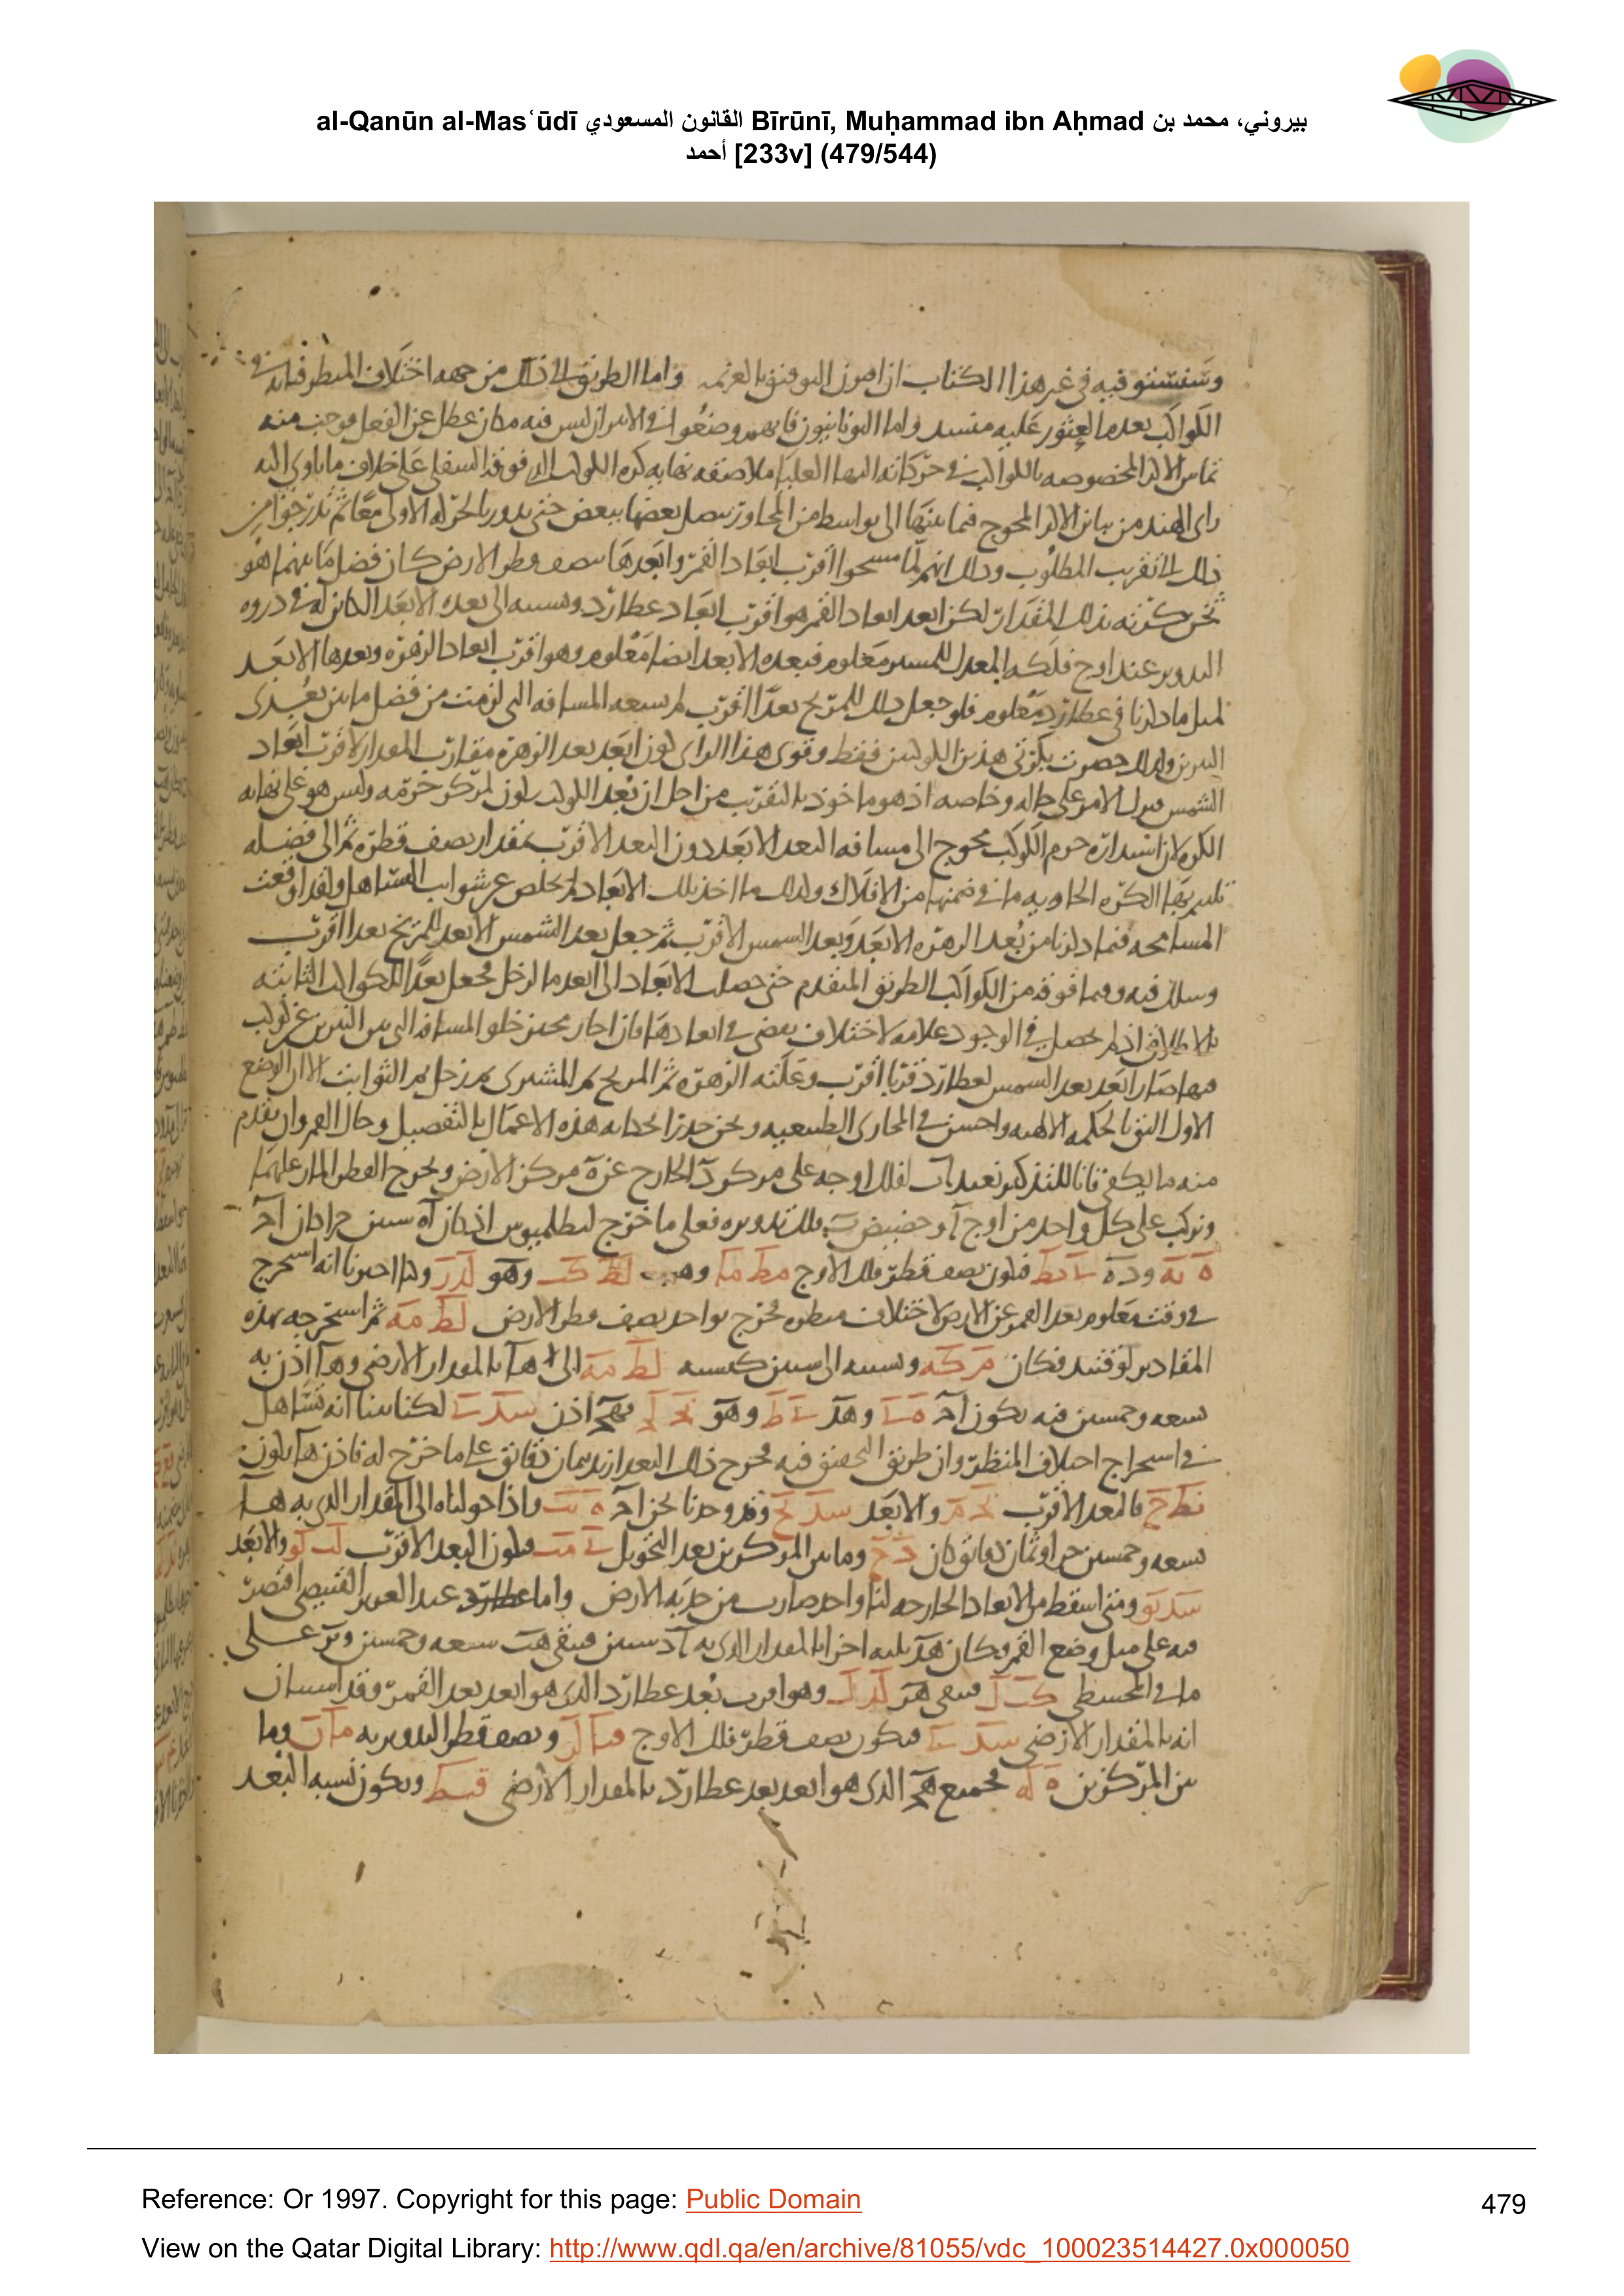 al-Qanūn al-Masʿūdī القانون المسعودي Bīrūnī, Muḥammad ibn Aḥmad بيروني، محمد بن
أحمد [233v] (479/544)
وسنستوفيه في غير هذا الكتاب ان امون التوفيق بالعزيمه واما الطريق الى ذلك من جهه اختلاف المنظر فانه في
الكواكب بعدما العثور عليه منسد واما اليونانيون فانهم وضعوا في الامر ان ليس فيه مكان عطل عن الفعل فوجب منه
تماس الاكر المخصوصه بالكواكب في حركاته النهاية العليا ملاصقه نهايه كره الكوكب الذي فوقه السفلى على خلاف ما ياوى اليه
راى الهند من تباين الاكر المحوج فيما بينها الى بواسط من المجاور تصل بعضها ببعض حتى يدور بالحركه الاولى معا ثم تدرجوا من
ذلك الى تقريب المطلوب وذلك انهم لما مسحوا اقرب ابعاد القمر وابعدها بنصف قطر الارض كان فضل ما بينهما هو
ثخن كرته بذلك المقدار لكن ابعد ابعاد القمر هو اقرب ابعاد عطارد ونسبته الى بعده الابعد الكائن له في ذروه
التدوير عند اوج فلكه المعدل للمسير معلوم فبعده الابعد ايضا معلوم وهو اقرب ابعاد الزهره وبعدها الابعد
لمثل ما ذكرنا في عطارد معلوم فلو جعل ذلك للمريخ بعدا اقرب لم يسعه المسافه التى لزمت من فضل ما بين بعدى
النيرين ولذلك حصرت بكرتى هذين الكوكبين فقط وقوى هذا الراى كون ابعد بعد الزهره مقارب المقدار لاقرب ابعاد
الشمس فترك الامر على حاله وخاصه اذ هو ماخوذ بالتقريب من اجل ان بعد الكوكب يكون لمركز جرمه وليس هو على نهايه
الكره لان استداره جرم الكوكب محوج الى مسافه البعد الابعد دون البعد الاقرب بمقدار نصف قطره ثم الى فضله
الكره الحاويه ما في ضمنها من الافلاك ولذلك ما اخذ بتلك الابعاد لم تخلص عن شوايب التساهل ولقد اوقعت
المسامحه فيما ذكرنا من بعد الزهره الابعد وبعد الشمس الاقرب ثم جعل بعد الشمس الابعد للمريخ بعدا اقرب
وسلك فيه وفيما فوقه من الكواكب الطريق المتقدم حتى حصلت الابعاد الى ابعد ما لزحل فجعل بعدا للكواكب الثابته
بالاطلاق اذ لم يحصل في الوجود علامه لاختلاف بعض في ابعادها فان اجاز مجيز خلو المسافه التى بين النيرين عن كوكب
فيها صار ابعد بعد الشمس لعطارد قربا اقرب وعليه الزهره ثم المريخ ثم المشترى ثم زحل ثم الثوابت الا ان الوضع
الاول اليق بالحكمه الالهيه واحسن في المجارى الطبيعيه ونحن حررنا لحكايه هذه الاعمال بالتفصيل وحال القمر وان تقدم
منه ما يكفى فانا للتذكير نعيد اب لفلك اوجه على مركز د الخارج عن ه مركز الارض ونخرج القطر المار عليهما
ونركب على كل واحد من اوج ا وحضيض ب فلك تدويره فعلى ما خرج لبطلميوس اذ كان اه ستين جزا كان اح
ه يه وده ي يط فيكون نصف قطر فلك الاوج مط ما وهب لط كب وهو لد ز وكما اخبرنا انه استخرج
في وقت معلوم بعد القمر عن الارض لاختلاف منظره فخرج بواحد نصف قطر الارض لط مه ثم استخرجه بهذه
المقادير لوقتيه فكان م كه ونسبته الى ستين كنسبه لط مه الى ها بالمقدار الارضى وها اذن به
تسعه وخمسين فبه يكون اح ه ي وهد ي ط وهو نج ن فهح اذن سد ي لكنا بينا انه تساهل
في استخراج اختلاف المنظر وان طريق التحقيق فيه مخرج ذلك البعد ازيد بثمان دقائق على ما خرج له فاذن ها يكون
نط ح فالبعد الاقرب نج م والابعد سد يح وقد وجدنا نحن اح ه يب واذا حولناه الى المقدار الذى به ها
تسعه وخمسين جزا وثمان دقائق كان ه ح وما بين المركزين بعد التحويل ي مب فيكون البعد الاقرب لب لو والابعد
سد يو ومتى اسقط من الابعاد الخارجه لنا واحد صارت من حدبه الارض واما عطارد عبد العزيز القبيصى اقتصر
فيه على مثل وضع القمر وكان هد ثلثه اجزا بالمقدار الذى به اد ستين فبقى هب سبعه وخمسين وبز على
ما في المجسطى كب ل فبقى هز لد ل وهو اقرب بعد عطارد الذى هو ابعد بعد القمر وقد استبان
انه بالمقدار الارضى سد ي فيكون نصف قطر فلك الاوج قيا ل ونصف قطر التدوير به ما ن وما
بين المركزين ه له فجميع هح الذى هو ابعد بعد عطارد بالمقدار الارضى قسط ويكون نسبه البعد
Reference: Or 1997. Copyright for this page: Public Domain
479
View on the Qatar Digital Library: http://www.qdl.qa/en/archive/81055/vdc_100023514427.0x000050